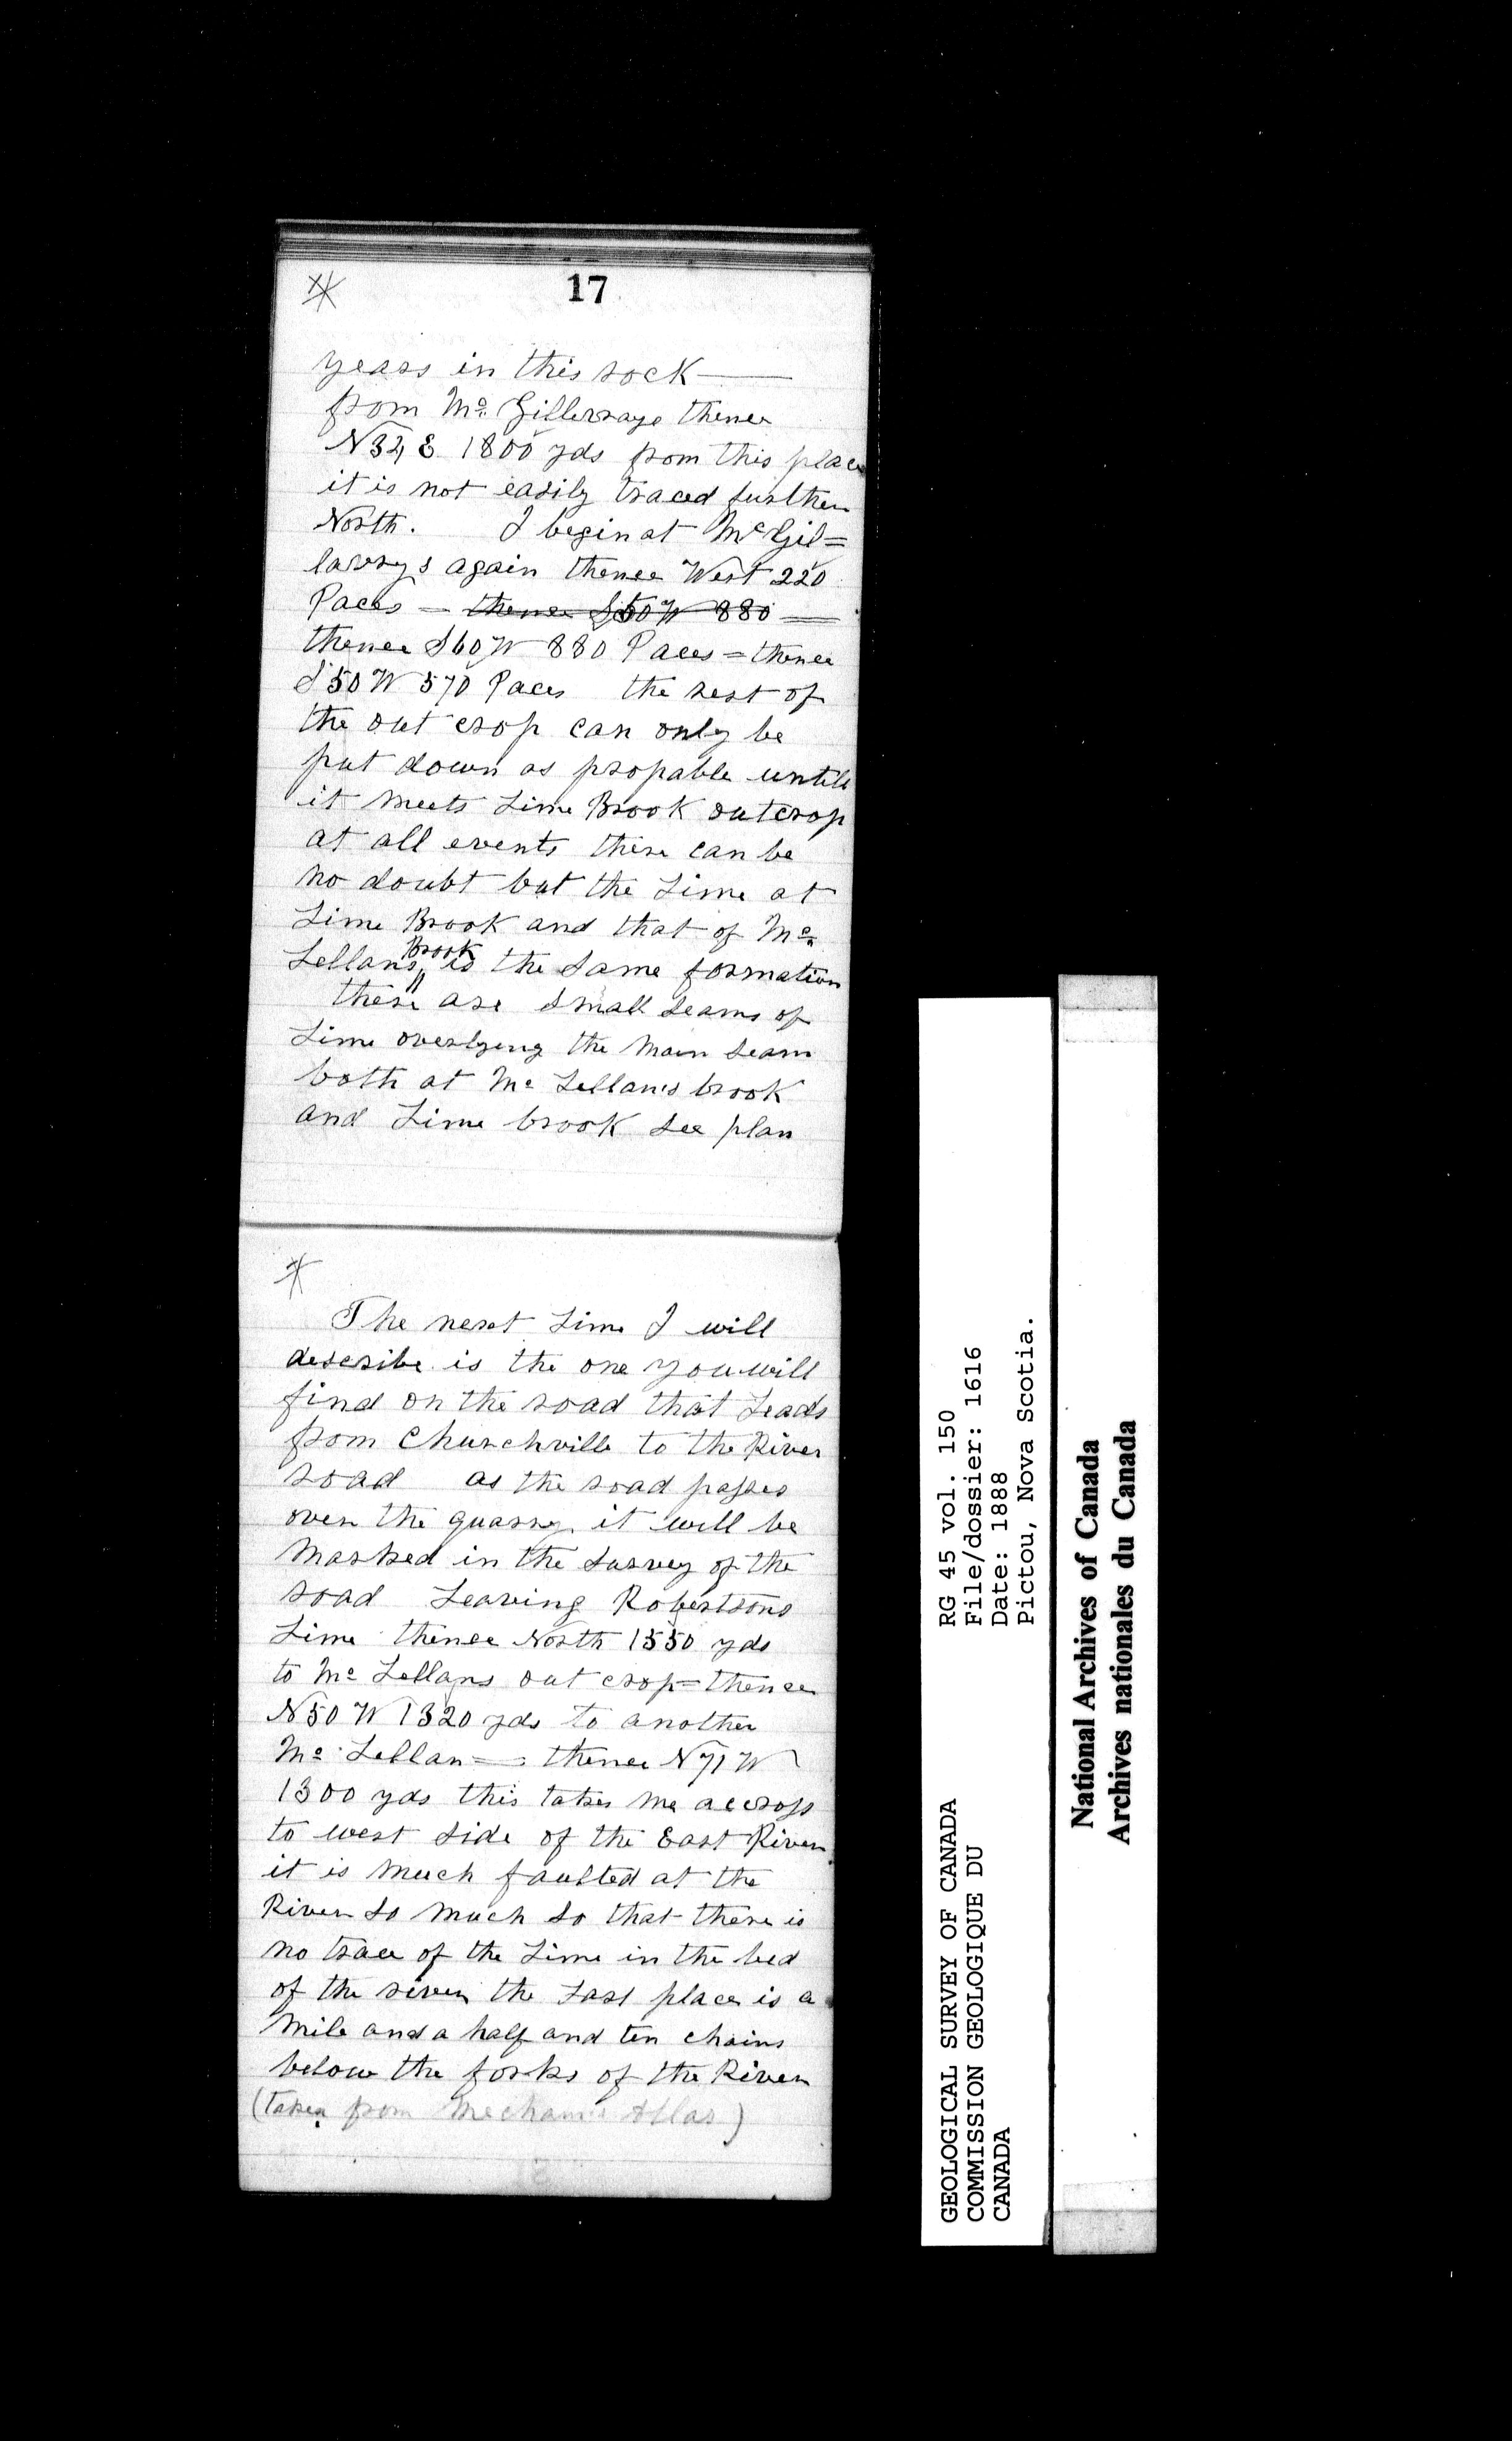 17
years in this rock —
from Mc Gillevrays thence
N 34 E 1800 yds from this place
it is not easily traced further
North. I begin at McGil=
lavrys again thence West 220
Paces — thence S50W 880 —
thence S60W 880 Paces = thence
S50W 570 Paces the rest of
the out crop can only be
put down as propable untill
it meets Lime Brook outcrop
at all events there can be
no doubt but the Lime at
Lime Brook and that of Mc
Lellans Brook is the same formation
there are small seams of
Lime overlyeng the main seam
both at Mc Lellan's brook
and Lime brook see plan
The next Lime I will
describe is the one you will
find on the road that Leads
from Churchville to the River
road as the road passes
over the quarry it will be
marked in the survey of the
road Leaving Robertsons
Lime thence North 1550 yds
to Mc Lellans out crop = thence
N50W 1320 yds to another
Mc Lellan = thence N71W
1300 yds this takes me accross
to west side of the East River
it is much faulted at the
River so much so that there is
no trace of the Lime in the bed
of the river the Last place is a
mile and a half and ten chains
below the forks of the River
(taken from Atlas)
GEOLOGICAL SURVEY OF CANADA
COMMISSION GEOLOGIQUE DU
CANADA
RG 45 vol. 150
File/dossier: 1616
Date: 1888
Pictou, Nova Scotia.
National Archives of Canada
Archives nationales du Canada